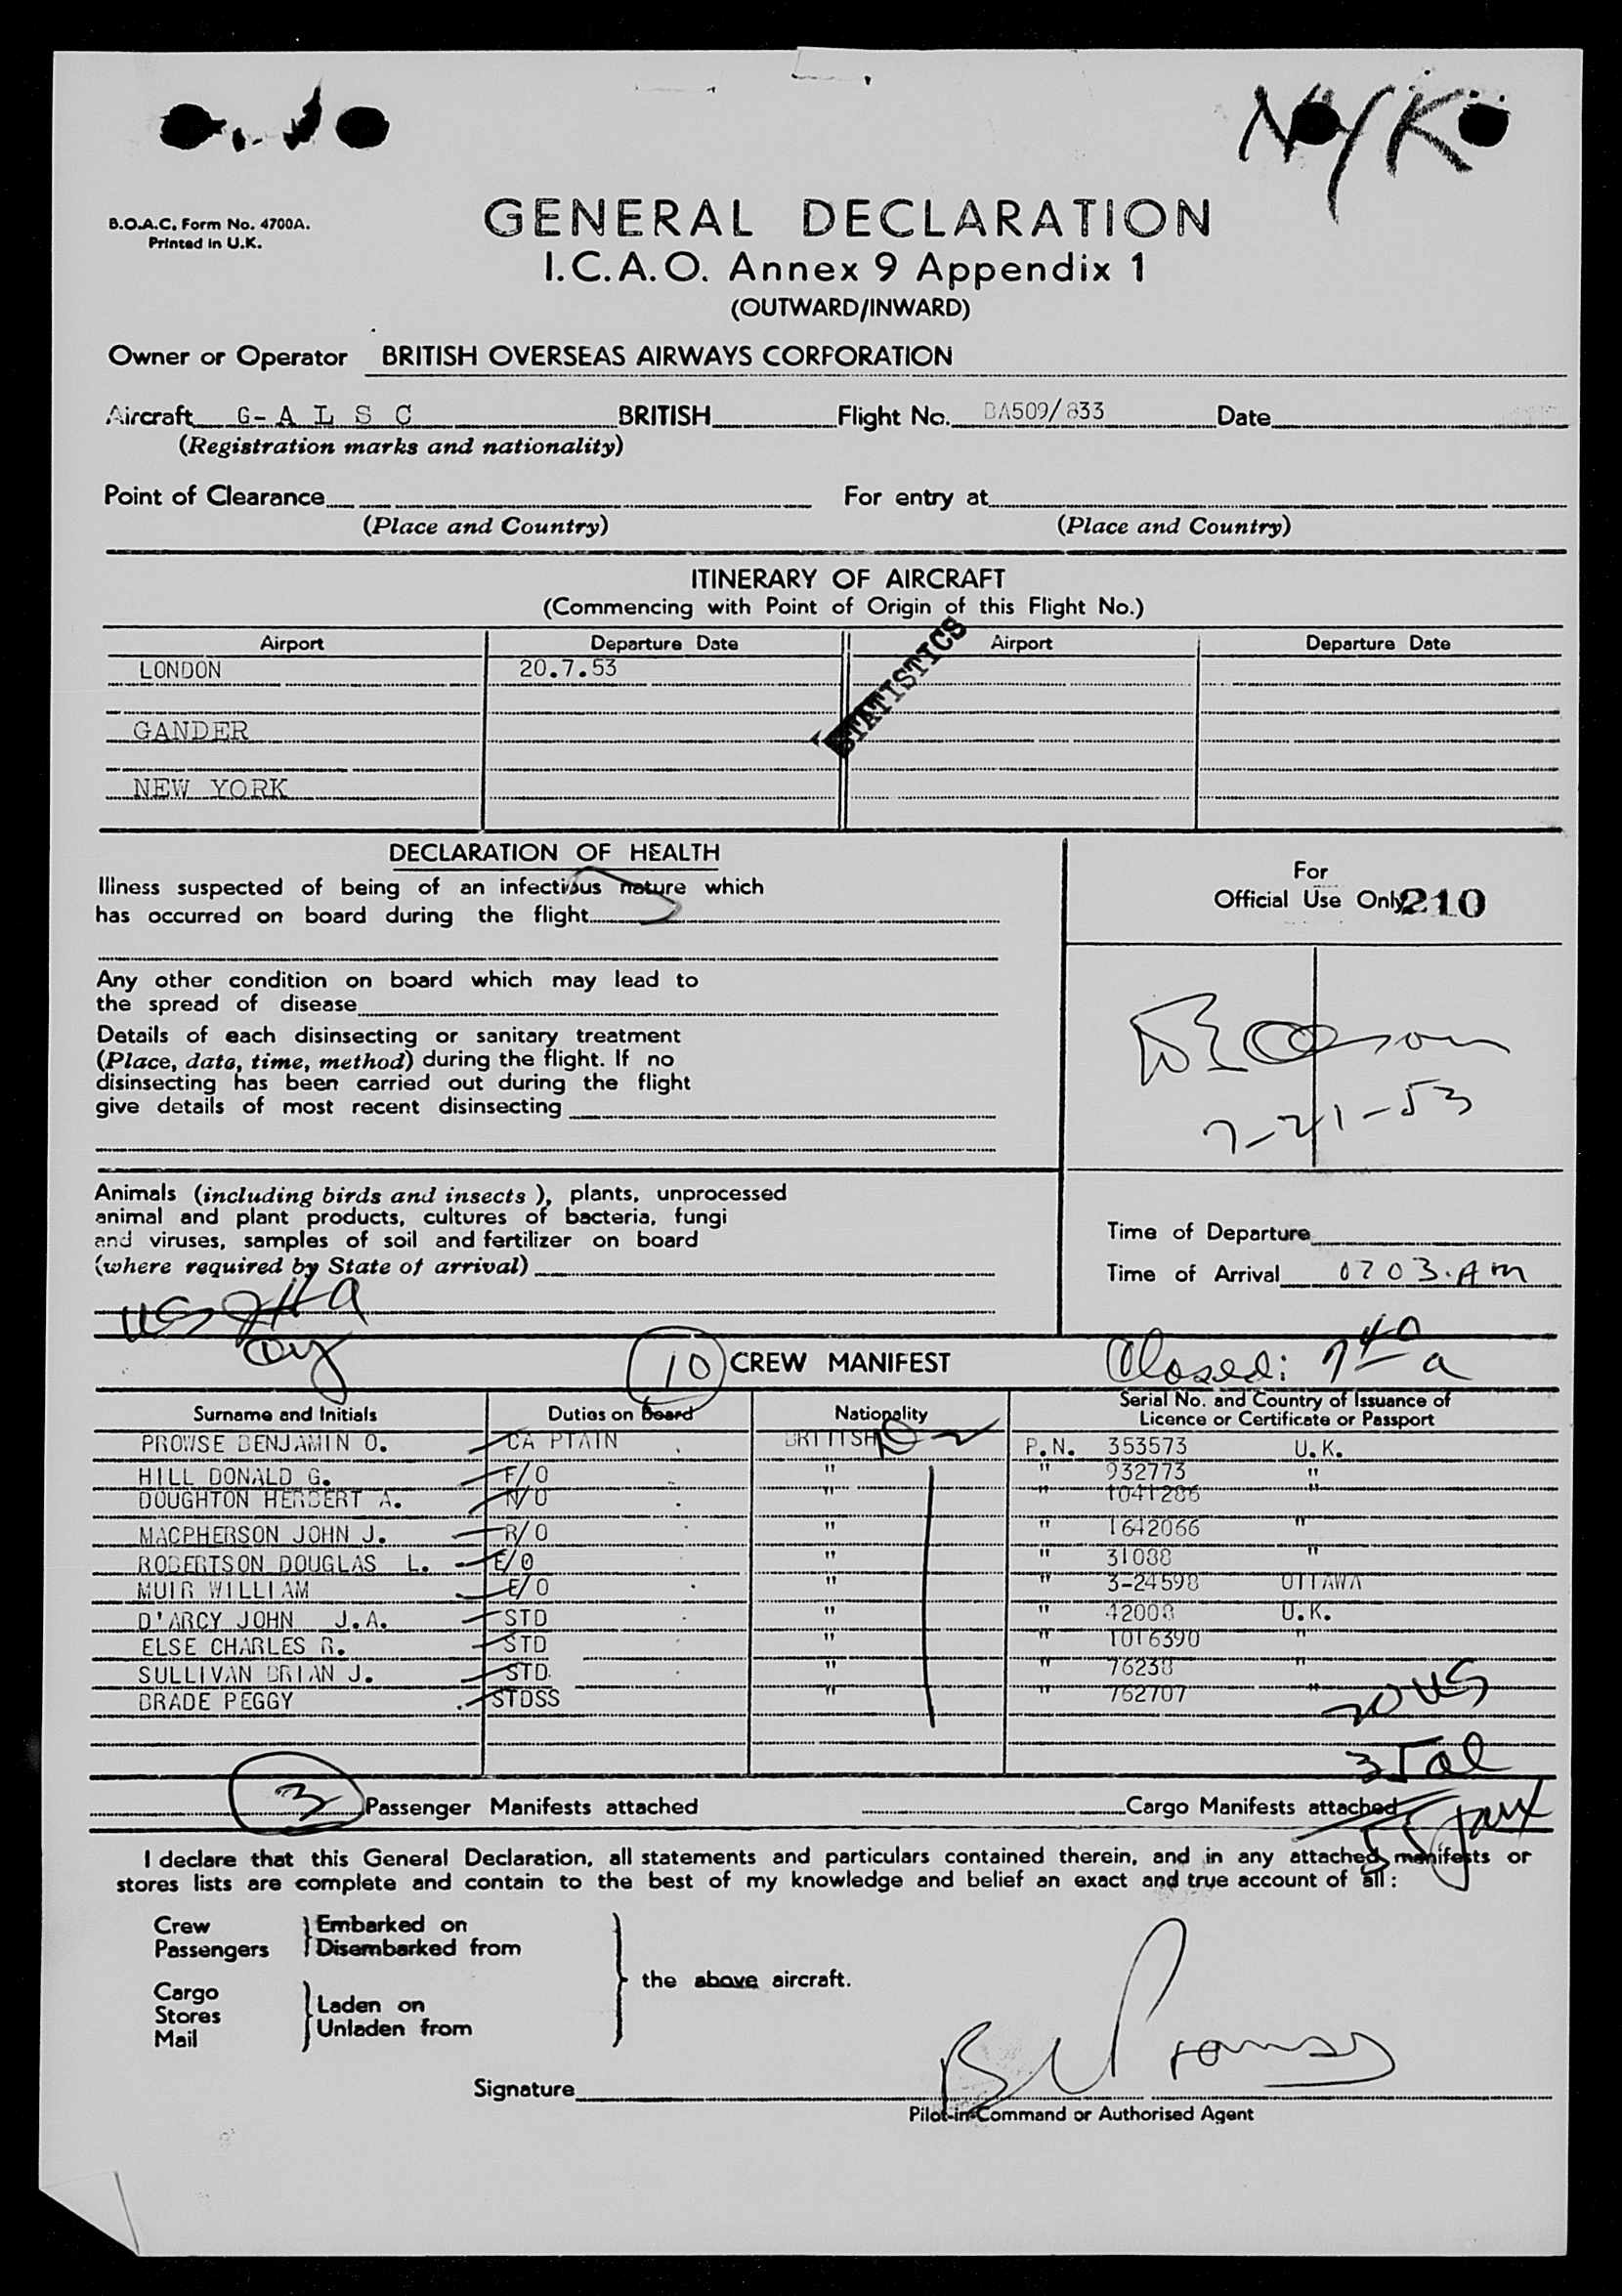 NY/K
B.O.A.C. Form No. 4700A.
Printed in U.K.
GENERAL DECLARATION
I.C.A.O. Annex 9 Appendix 1
(OUTWARD/INWARD)
Owner or Operator BRITISH OVERSEAS AIRWAYS CORPORATION
Aircraft G- A L S C BRITISH Flight No. BA509/833 Date
(Registration marks and nationality)
Point of Clearance For entry at
(Place and Country) (Place and Country)
ITINERARY OF AIRCRAFT
(Commencing with Point of Origin of this Flight No.)
Airport Departure Date Airport Departure Date
STATISTICS
LONDON 20.7.53
GANDER
NEW YORK
DECLARATION OF HEALTH
Illness suspected of being of an infectious nature which
has occurred on board during the flight
Any other condition on board which may lead to
the spread of disease
Details of each disinsecting or sanitary treatment
(Place, date, time, method) during the flight. If no
disinsecting has been carried out during the flight
give details of most recent disinsecting
For
Official Use Only 210
7-21-53
Animals (including birds and insects), plants, unprocessed
animal and plant products, cultures of bacteria, fungi
and viruses, samples of soil and fertilizer on board
(where required by State of arrival)
Time of Departure
Time of Arrival 0703.AM
10 CREW MANIFEST Closed: 7 40 a
Surname and Initials Duties on Board Nationality Serial No. and Country of Issuance of
Licence or Certificate or Passport
PROWSE BENJAMIN O. CA PTAIN BRITISH 10 P.N. 353573 U.K.
HILL DONALD G. F/O " " 932773 "
DOUGHTON HERBERT A. N/O " " 1041286 "
MACPHERSON JOHN J. R/O " " 1642066 "
ROBERTSON DOUGLAS L. E/O " " 31088 "
MUIR WILLIAM E/O " " 3-24598 OTTAWA
D'ARCY JOHN J.A. STD " " 42008 U.K.
ELSE CHARLES R. STD " " 1016390 "
SULLIVAN BRIAN J. STD. " " 76238 "
BRADE PEGGY STDSS " " 762707 "
20 US
3 Passenger Manifests attached Cargo Manifests attached
I declare that this General Declaration, all statements and particulars contained therein, and in any attached manifests or
stores lists are complete and contain to the best of my knowledge and belief an exact and true account of all:
Crew Embarked on
Passengers Disembarked from
the above aircraft.
Cargo
Stores Laden on
Mail Unladen from
Signature
Pilot-in-Command or Authorised Agent